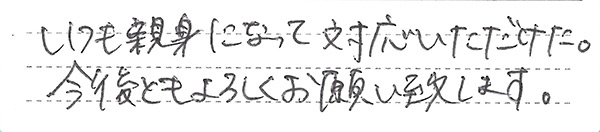 いつも親身になって対応いただけた。
今後ともよろしくお願い致します。